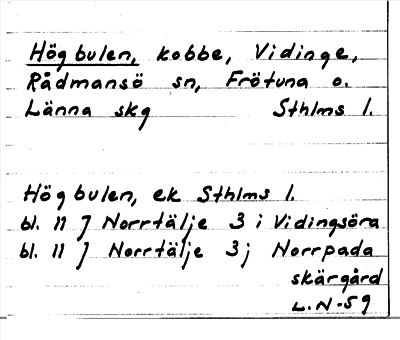 Högbulen, kobbe, Vidinge,
Rådmansö sn, Frötuna o.
Länna skg Sthlms l.
Högbulen, ek Sthlms l.
bl. 11 J Norrtälje 3 i Vidingsöra
bl. 11 J Norrtälje 3j Norrpada
skärgård
L.N-59